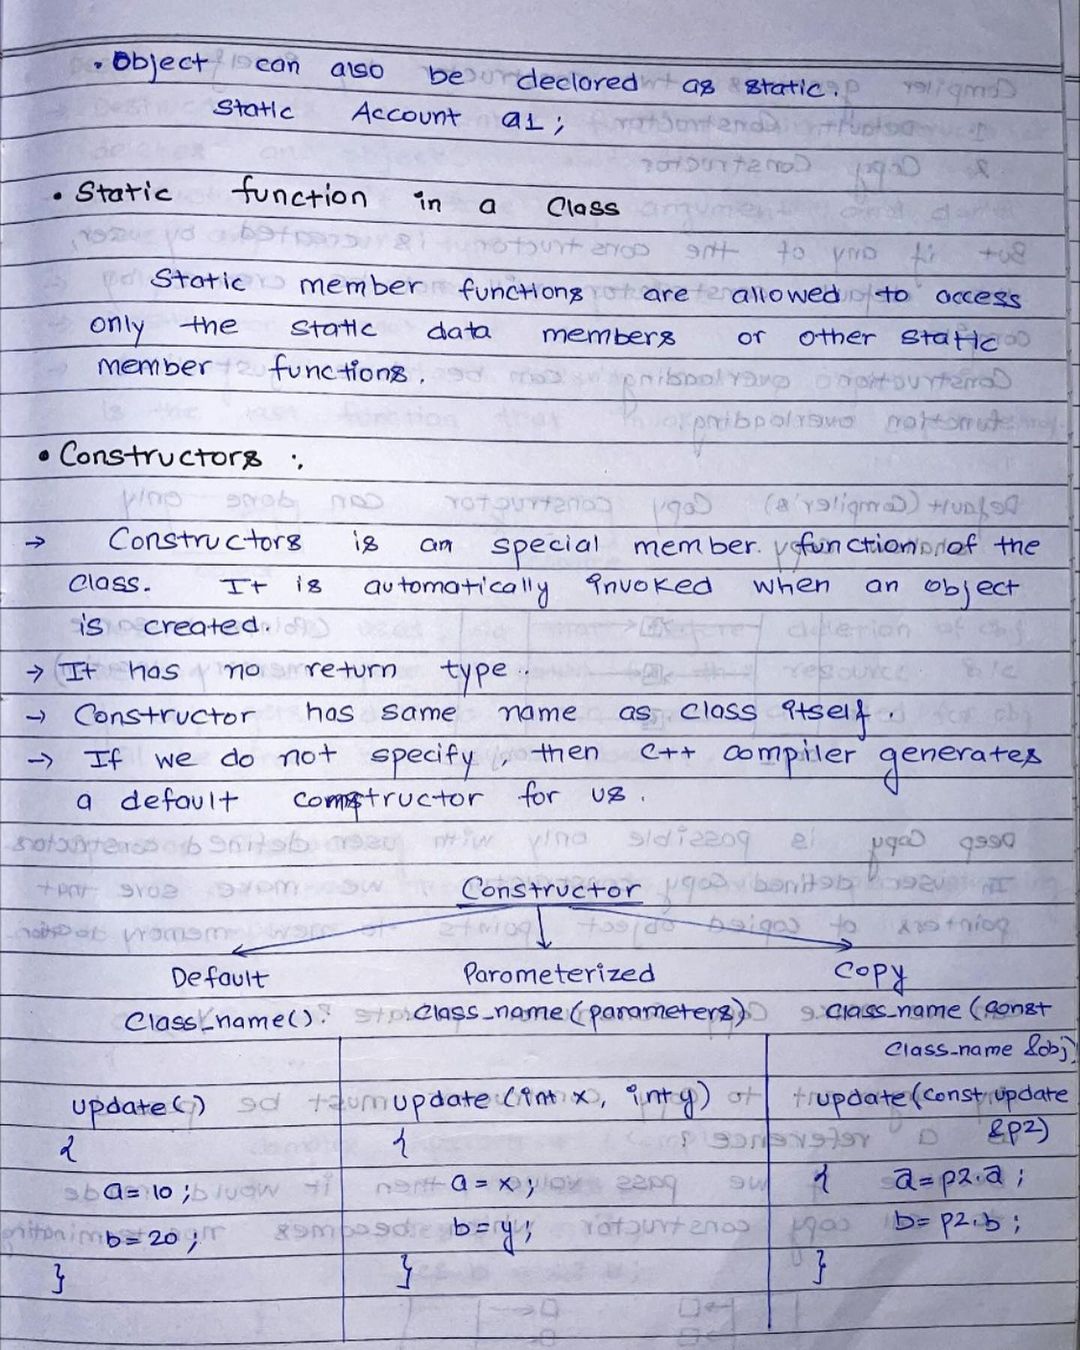 • Object can also be declared as static.
Static Account a1;
• Static function in a Class
Static member functions are allowed to access
only the static data members or other static
member functions.
• Constructors :
→ Constructors is an special member function of the
class. It is automatically invoked when an object
is created.
→ It has no return type.
→ Constructor has same name as class itself.
→ If we do not specify, then C++ compiler generates
a default constructor for us.
Constructor
Default Parameterized Copy
Class_name(). class_name (parameters) class_name (const
Class_name &obj)
update() update (int x, int y) update (const update
&p2)
{ {
a = 10; a = x; { a = p2.a;
b = 20; b = y; b = p2.b;
} } }